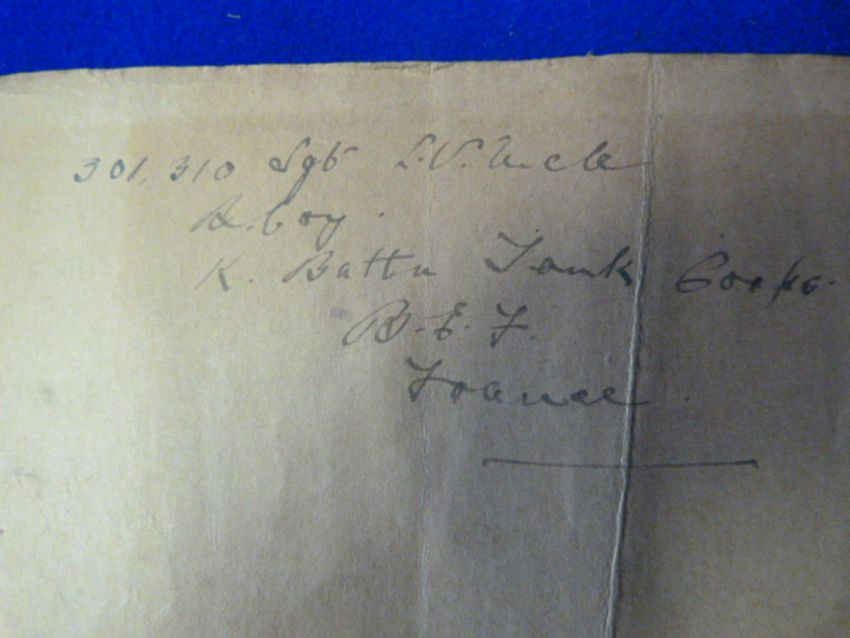 301,310 Sgt L.V.
A. Coy.
K. Battn Tank Corps.
B.E.F.
France.